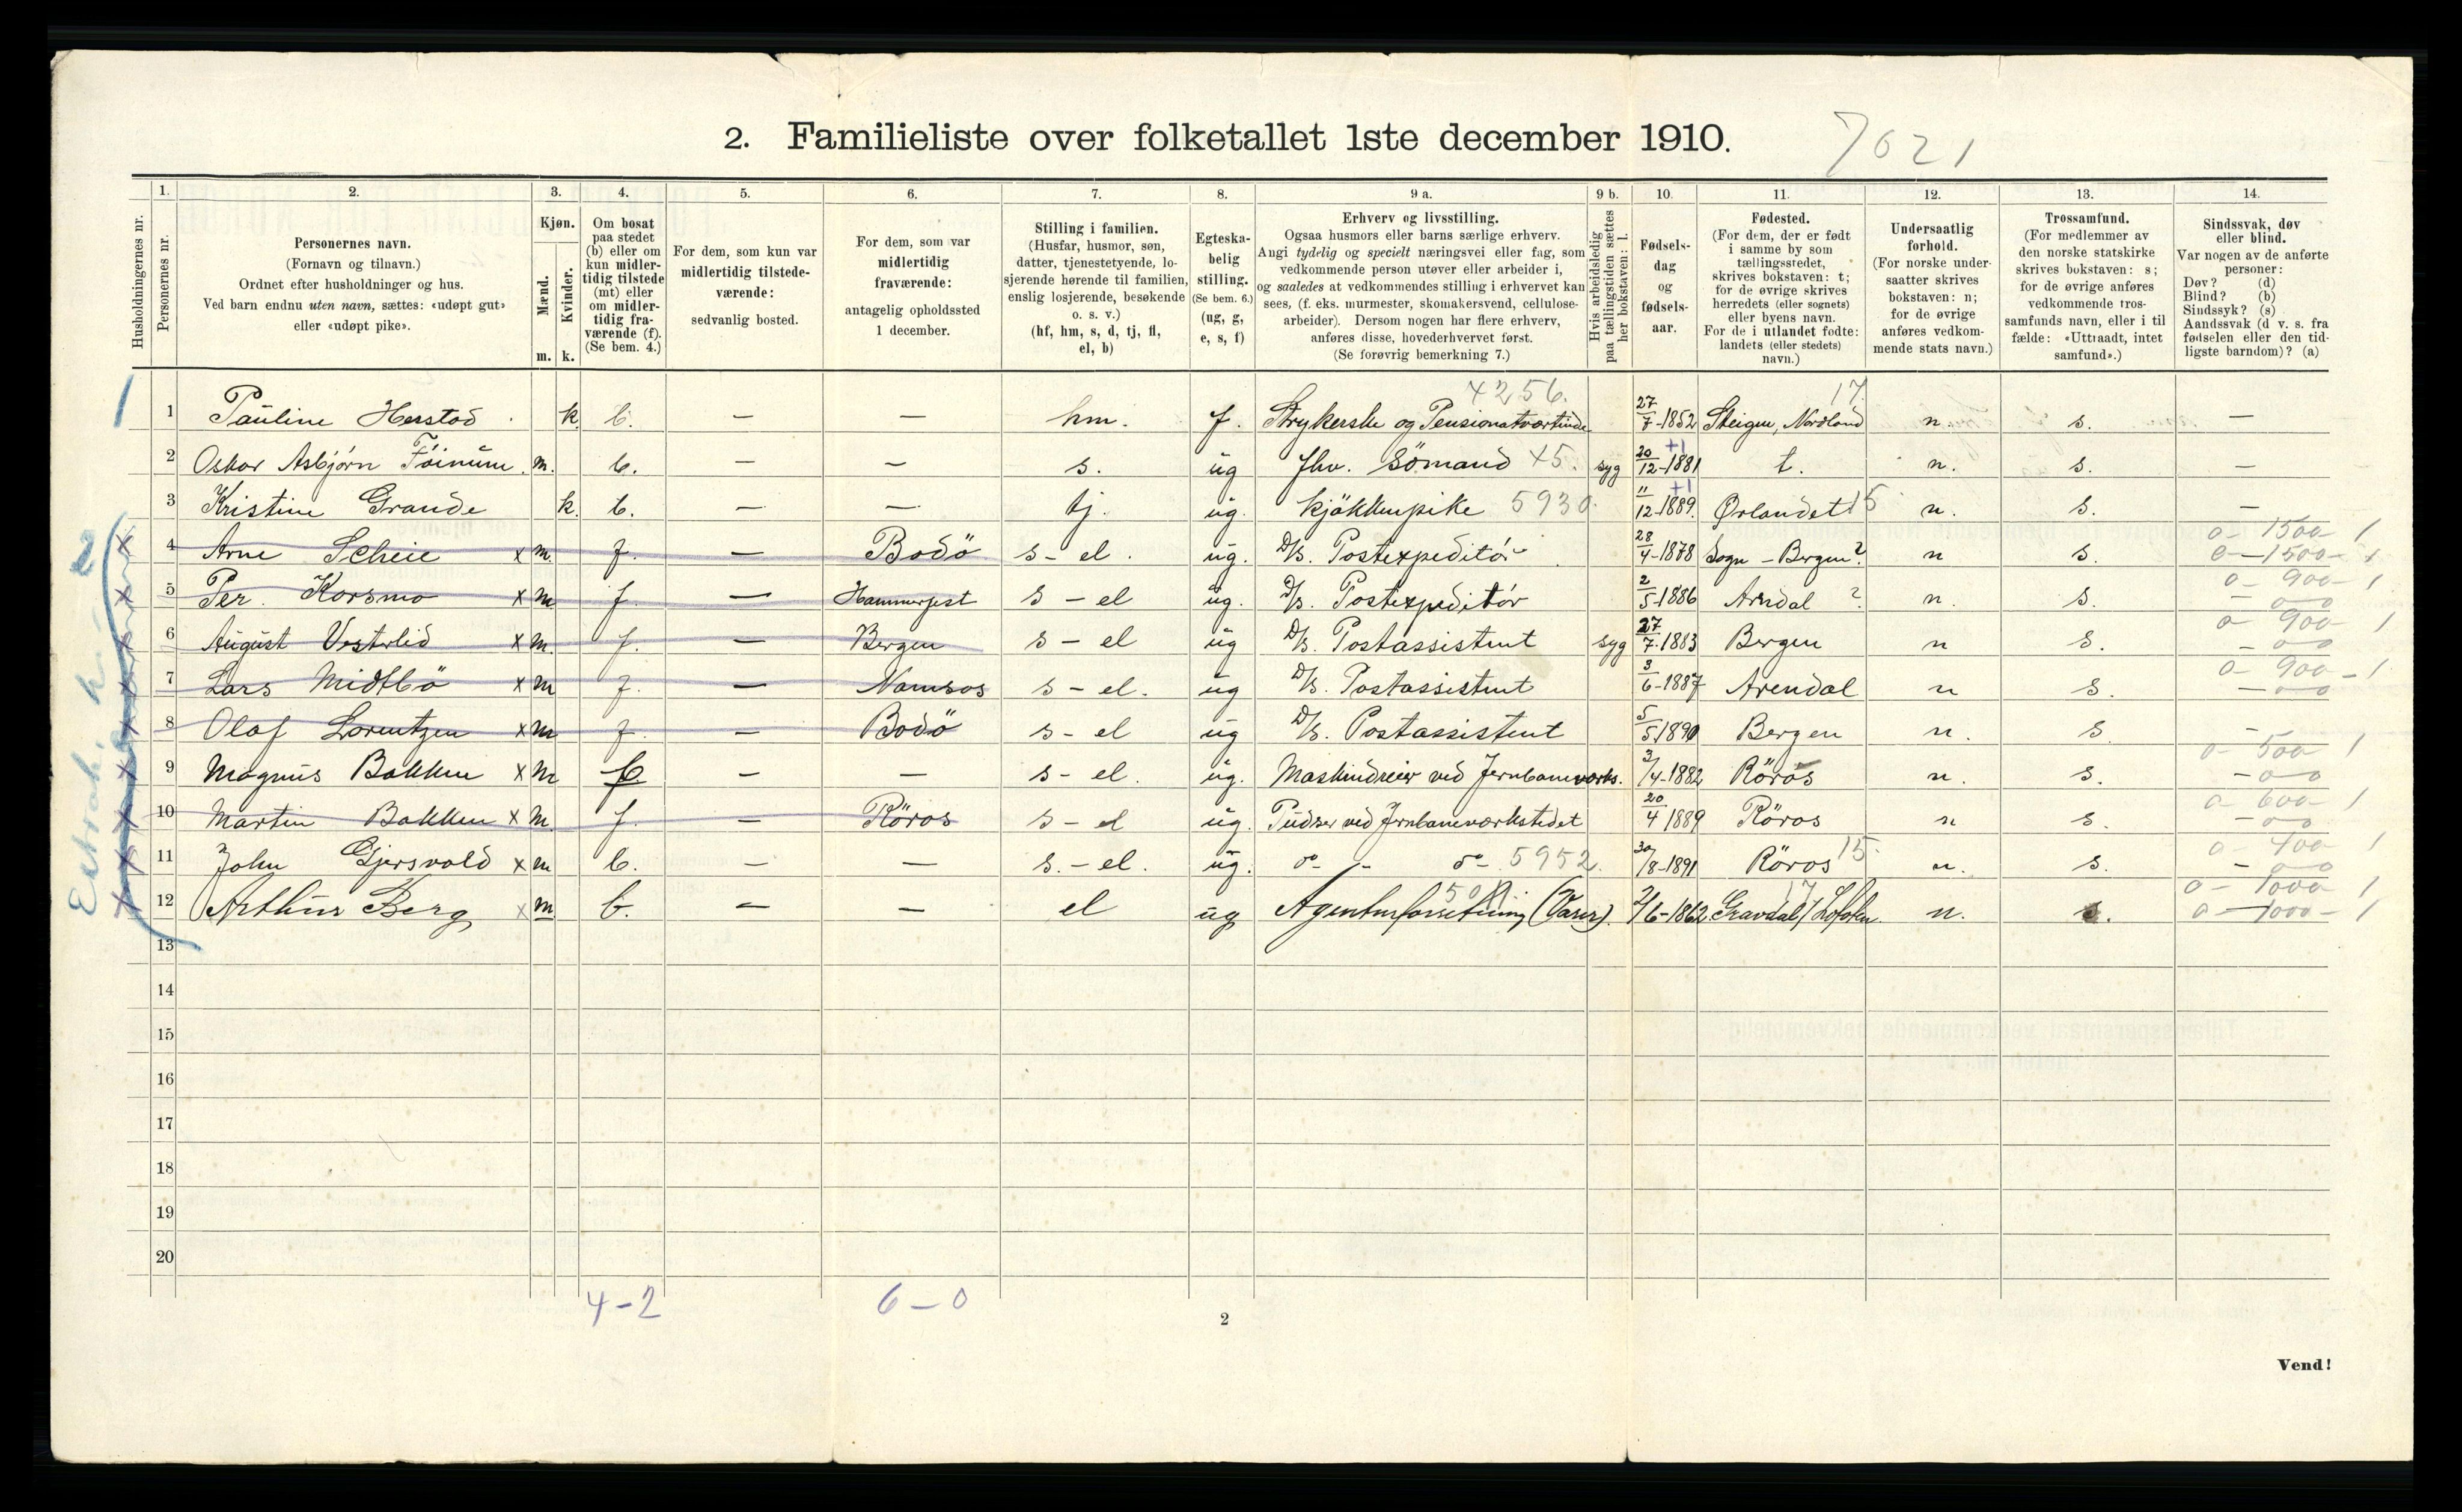 2. Familieliste over folketallet 1ste december 1910.
7021
1. 2. 3. 4. 5. 6. 7. 8. 9 a. 9 b. 10. 11. 12. 13. 14.
Husholdningernes nr.
Personernes nr.
Personernes navn.
(Fornavn og tilnavn.)
Ordnet efter husholdninger og hus.
Ved barn endnu uten navn, sættes: «udøpt gut»
eller «udøpt pike».
Kjøn.
Mænd.
Kvinder.
m. k.
Om bosat
paa stedet
(b) eller om
kun midler-
tidig tilstede
(mt) eller
om midler-
tidig fra-
værende (f).
(Se bem. 4.)
For dem, som kun var
midlertidig tilstede-
værende:
sedvanlig bosted.
For dem, som var
midlertidig
fraværende:
antagelig opholdssted
1 december.
Stilling i familien.
(Husfar, husmor, søn,
datter, tjenestetyende, lo-
sjerende hørende til familien,
enslig losjerende, besøkende
o. s. v.)
(hf, hm, s, d, tj, fl,
el, b)
Egteska-
belig
stilling.
(Se bem. 6.)
(ug, g,
e, s, f)
Erhverv og livsstilling.
Ogsaa husmors eller barns særlige erhverv.
Angi tydelig og specielt næringsvei eller fag, som
vedkommende person utøver eller arbeider i,
og saaledes at vedkommendes stilling i erhvervet kan
sees, (f. eks. murmester, skomakersvend, cellulose-
arbeider). Dersom nogen har flere erhverv,
anføres disse, hovederhvervet først.
(Se forøvrig bemerkning 7.)
Hvis arbeidsledig
paa tællingstiden sættes
her bokstaven: l.
Fødsels-
dag
og
fødsels-
aar.
Fødested.
(For dem, der er født
i samme by som
tællingsstedet,
skrives bokstaven: t;
for de øvrige skrives
herredets (eller sognets)
eller byens navn.
For de i utlandet fødte:
landets (eller stedets)
navn.)
Undersaatlig
forhold.
(For norske under-
saatter skrives
bokstaven: n;
for de øvrige
anføres vedkom-
mende stats navn.)
Trossamfund.
(For medlemmer av
den norske statskirke
skrives bokstaven: s;
for de øvrige anføres
vedkommende tros-
samfunds navn, eller i til
fælde: «Uttraadt, intet
samfund».)
Sindssvak, døv
eller blind.
Var nogen av de anførte
personer:
Døv? (d)
Blind? (b)
Sindssyk? (s)
Aandssvak (d v. s. fra
fødselen eller den tid-
ligste barndom)? (a)
4256. 17.
1 1 Pauline Herstad k. b. — — hm. f. Strykerske og Pensionatværtinde 27/7-1852 Steigen, Nordland n. s. —
2 Oskar Asbjørn Föinum. m. b. — — s. ug fhv. Sömand X5. syg 20/12-1881 +1 t. n. s. —
3 Kristine Grande k. b. — — tj. ug. Kjökkenpike 5930. 11/12-1889. +1 Ørlandet 15 n. s. —
4 Arne Scheie x m. f. — Bodö s - el. ug. D/S. Postexpeditör 28/4-1878 Sogn - Bergen? n s. 0 - 1500 - 1
0 - 1500 - 1
5 Per Korsmo x m f. — Hammerfest s - el ug. D/S. Postexpeditör 2/5-1886 Arndal ? n. s. 0 - 900 - 1
6 August Vesterlid x m. f. — Bergen s - el ug D/S. Postassistent syg 27/7-1883 Bergen n s. 0 - 900 - 1
7 Lars Midtbö x m f. — Namsos s - el. ug D/S. Postassistent 3/6-1887 Arendal n s. 0 - 900 - 1
8 Olaf Lorentzen x m f. — Bodö s - el ug D/S. Postassistent 5/5 1890 Bergen n. s. —
9 Magnus Bakken x m — — s - el. ug. Maskindreier ved Jernbaneverks. 3/4-1882 Röros n. s. 0 - 500 1
10 Martin Bakken x m f. — Röros s - el ug. Pudser ved Jernbaneværkstedet 20/4 1889 Röros n s. 0 - 600 - 1
11 John Gjersvold x m b. — — s. - el. ug. do - do 5952. 30/8-1891 Röros 15. n. s. 0 - 400 - 1
12 Arthur Berg x m b. — — el ug Agenturforretning (Varer). 2/6-1862 Gravdal / Lofoten. 17 n. s. 0 - 1000 - 1
0 - 1000 - 1
13
14
15
16
17
18
19
20
4 - 2 6 - 0
2
Vend!